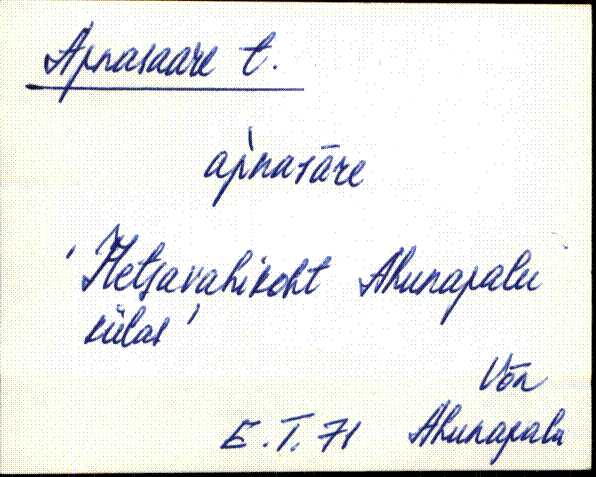 Apnasaare t.
apnasāre
'Metsavahikoht Ahunapalu
külas'
Võn
E.T. 71 Ahunapalu